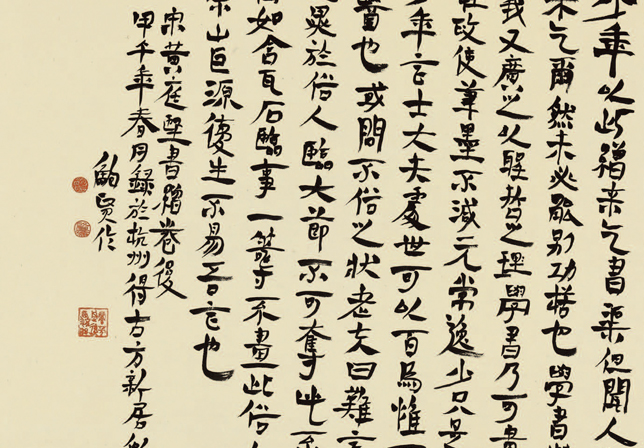 少年以此繒来乞書渠但聞人
来乞爾然未必能别功楛也學書
義又廣之以聖哲之理學書乃可貴
政使筆墨不減元常逸少只是
少年言士大夫處世可以百為惟
醫也或問不俗之状老夫曰難言
異於俗人臨大節而不可奪此不
如含瓦石臨事一籌不畫此俗人
宗山巨源復生不易吾言也
宋黄庭堅書繒卷後
甲午年春月録於杭州得古方新居
鮑賢伦